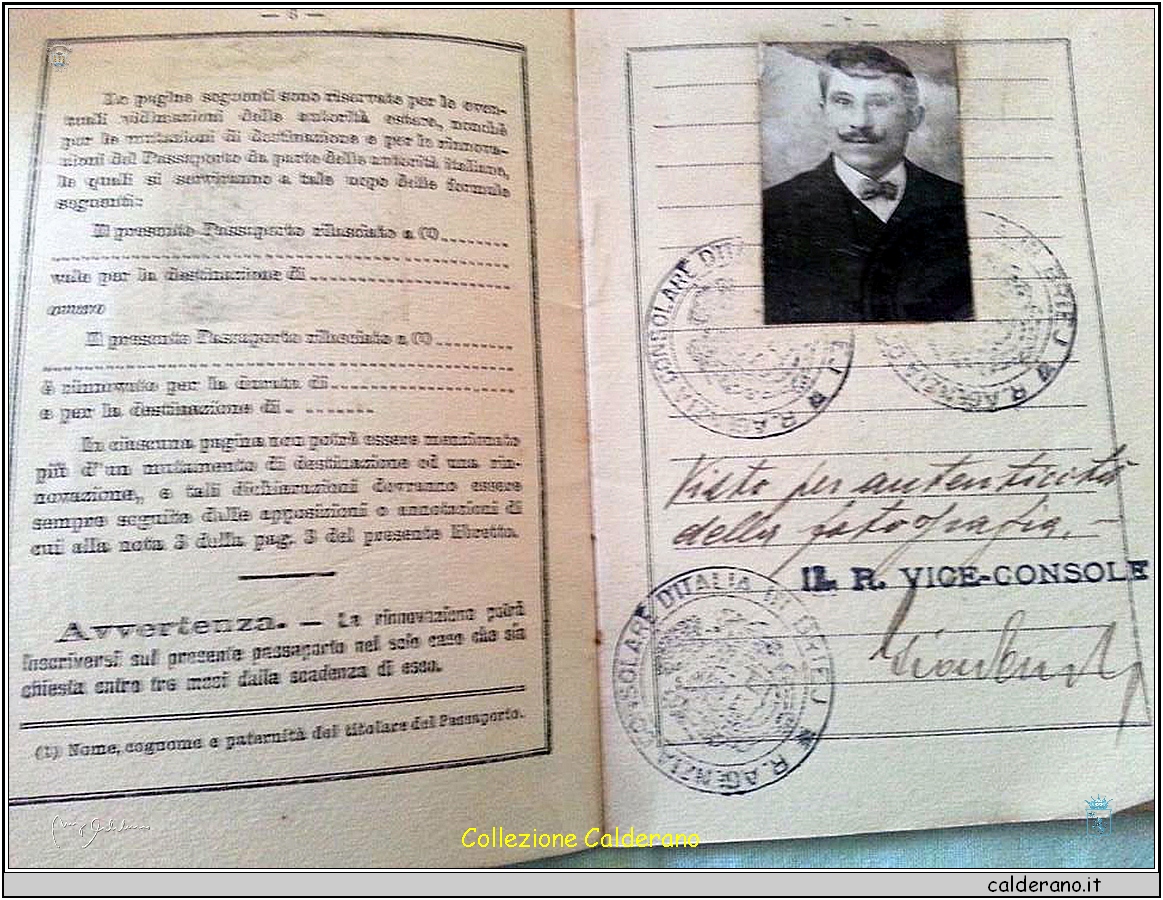 — 6 —
Le pagine seguenti sono riservate per le even-
tuali vidimazioni delle autorità estere, nonchè
per le mutazioni di destinazione e per le rinnova-
zioni del Passaporto da parte delle autorità italiane,
le quali si serviranno a tale uopo delle formule
seguenti:
Il presente Passaporto rilasciato a (1)
vale per la destinazione di
ovvero
Il presente Passaporto rilasciato a (1)
è rinnovato per la durata di
e per la destinazione di
In ciascuna pagina non potrà essere menzionato
più d'un mutamento di destinazione od una rin-
novazione, e tali dichiarazioni dovranno essere
sempre seguite dalle apposizioni o annotazioni di
cui alla nota 3 della pag. 3 del presente libretto.
Avvertenza. — La rinnovazione potrà
inscriversi sul presente passaporto nel solo caso che sia
chiesta entro tre mesi dalla scadenza di esso.
(1) Nome, cognome e paternità del titolare del Passaporto.
R. AGENZIA CONSOLARE D'ITALIA
BRIEJ R. AGENZIA
Visto per autenticità
della fotografia. —
IL R. VICE-CONSOLE
R. AGENZIA CONSOLARE D'ITALIA DI BRIEJ
Collezione Calderano
calderano.it